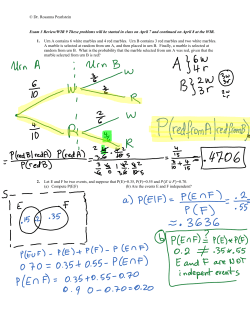 © Dr. Rosanna Pearlstein
Exam 1 Review/WIR 9 These problems will be started in class on April 7 and continued on April 8 at the WIR
1. Urn A contains 6 white marbles and 4 red marbles. Urn B contains 3 red marbles and two white marbles.
A marble is selected at random from urn A, and then placed in urn B. Finally, a marble is selected at
random from urn B. What is the probability that the marble selected from urn A was red, given that the
marble selected from urn B is red?
Urn A
Urn B
A } 6w
4r
B } 2w
3r
6/10
W
W
R
4/10
R
W
2/6
P(red from A | red from B)
= .4706
2. Let E and F be two events, and suppose that P(E)=0.35, P(F)=0.55 and P(E∪F)=0.70.
(a) Compute P(E|F)
(b) Are the events E and F independent?
S
E
F
.15
.2
.35
a) P(E|F) = P(E∩F) / P(F) = .2 / .55
≈ .3636
P(E∪F) = P(E) + P(F) - P(E∩F)
0.70 = 0.35 + 0.55 - P(E∩F)
P(E∩F) = 0.35 + 0.55 - 0.70
0.90 - 0.70 = 0.20
b) P(E∩F) ≟ P(E)*P(F)
0.2 ≠ .35*.55
E and F are NOT
independent events